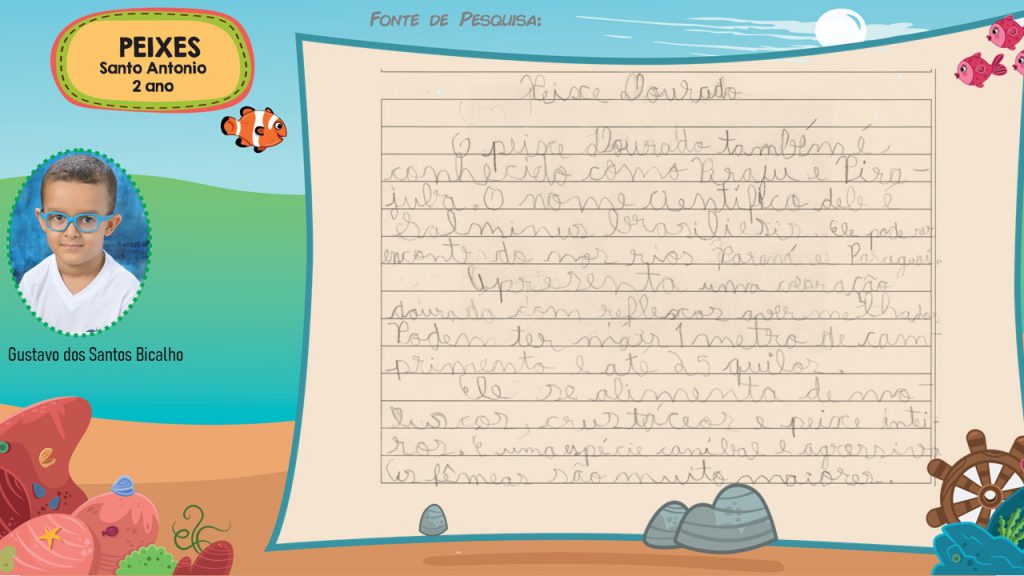 PEIXES
Santo Antonio
2 ano
FONTE DE PESQUISA:
Gustavo dos Santos Bicalho
Peixe Dourado
O peixe Dourado também é
conhecido como Piraju e Pira-
juba. O nome científico dele é
Salminus brasiliesis. Ele pode ser
encontrado nos rios Paraná e Paraguai.
Apresenta uma coloração
dourado com reflexos avermelhados
Podem ter mais 1 metro de com
primento e até 25 quilos.
Ele se alimenta de mo
luscos, crustáceos e peixe intei-
ros. É uma espécie canibal e agressiva
As fêmeas são muito maiores.